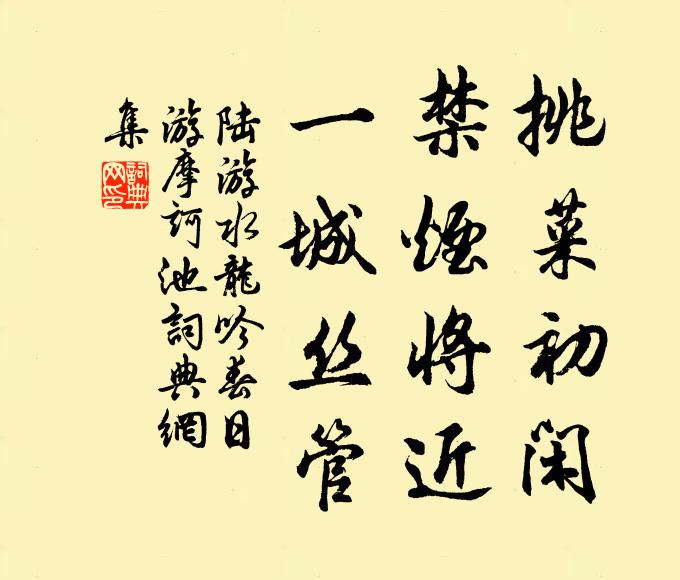 挑菜初闲
禁煙将近
一城丝管
陆游水龍吟春日
游摩訶池詞典網
集
詞典網印